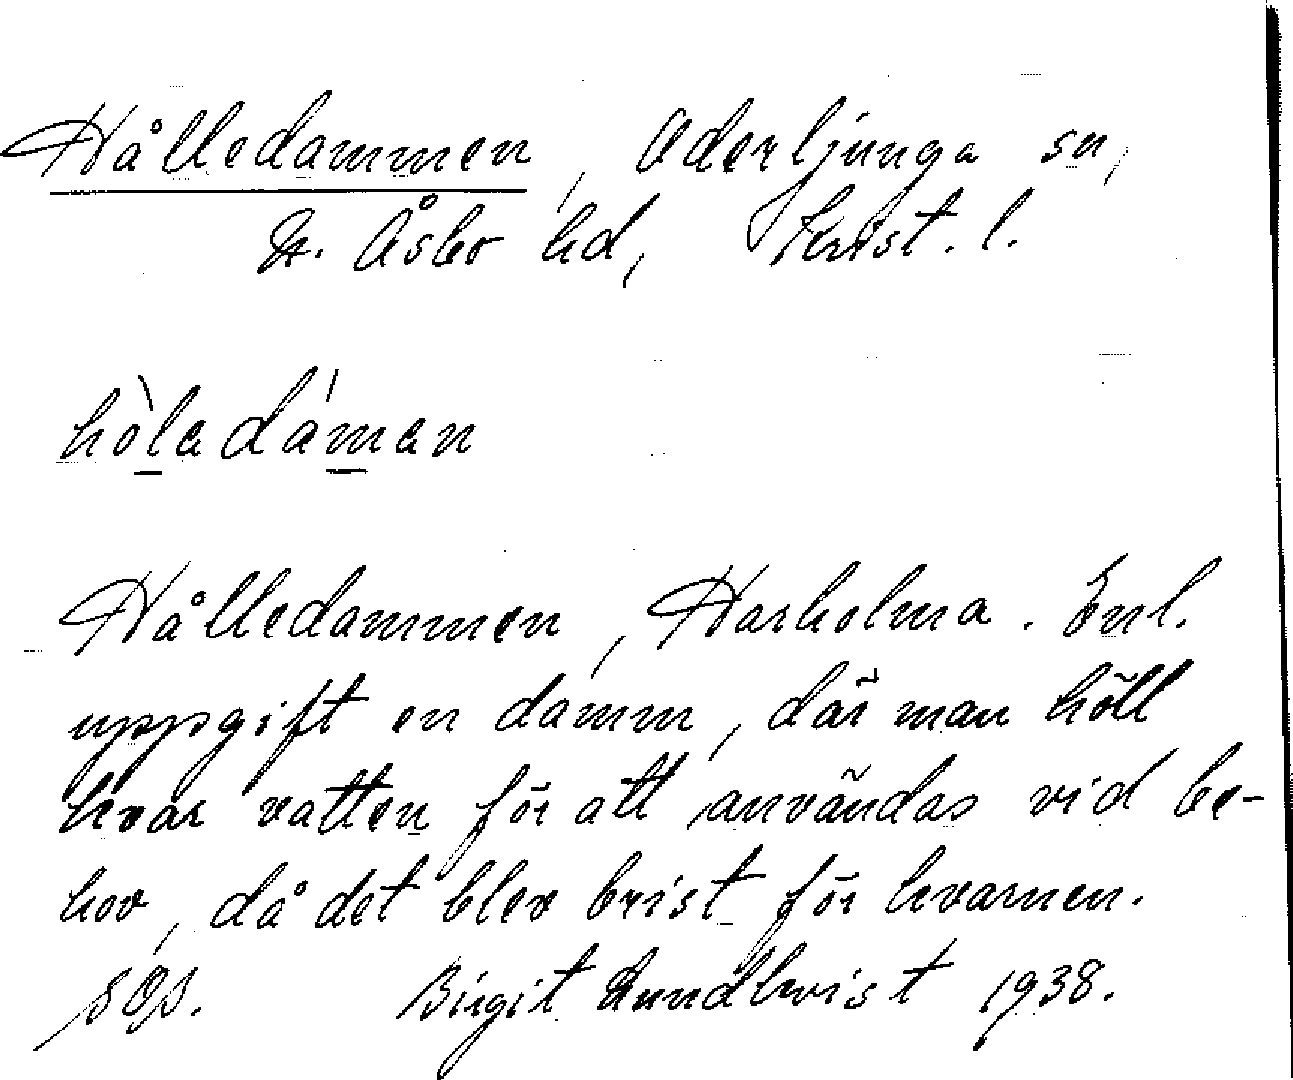 Hålledammen, Oderljunga sn,
N. Åsbo hd, Krist. l.
hòledámen
Hålledammen, Harholma. Enl.
uppgift en damm, där man höll
kvar vatten för att användas vid be-
hov, då det blev brist för kvarnen.
Birgit Lundkvist 1938.